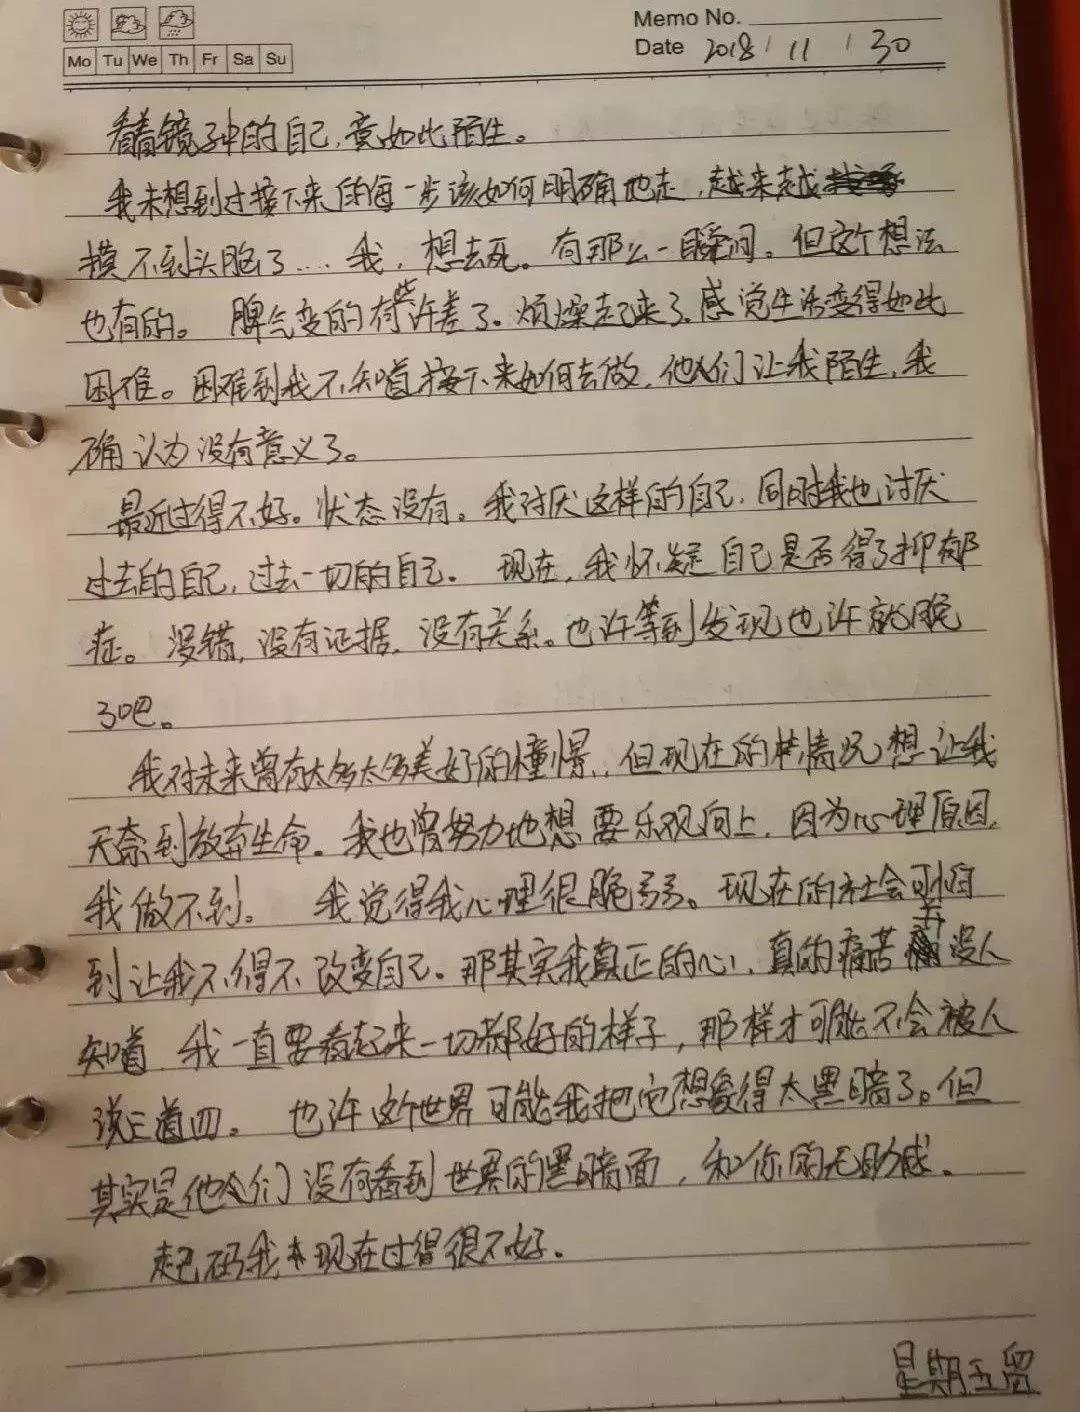 Memo No.
Mo Tu We Th Fr Sa Su
Date 2018 / 11 / 30
看着镜子中的自己，竟如此陌生。
我未想到过接下来的每一步该如何明确地走，越来越
摸不到头脑了....我，想去死。有那么一瞬间。但这个想法
也有的。脾气变的有些许差了。烦燥起来了。感觉生活变得如此
困难。困难到我不知道接下来如何去做，他人们让我陌生，我
确认为没有意义了。
最近过得不好。状态没有。我讨厌这样的自己，同时我也讨厌
过去的自己，过去一切的自己。现在，我怀疑自己是否得了抑郁
症。没错，没有证据，没有关系。也许等到发现也许就晚
了吧。
我对未来曾有太多太多美好的憧憬，但现在的情况想让我
无奈到放弃生命。我也曾努力地想要乐观向上，因为心理原因，
我做不到。我觉得我心理很脆弱。现在的社会可怕
到让我不得不改变自己。那其实我真正的心，真的痛苦并没人
知道，我一直要看起来一切都好的样子，那样才可能不会被人
说三道四。也许这个世界可能我把它想象得太黑暗了。但
其实是他人们没有看到世界的黑暗面，和你的无助感。
起码我现在过得很不好。
星期五留